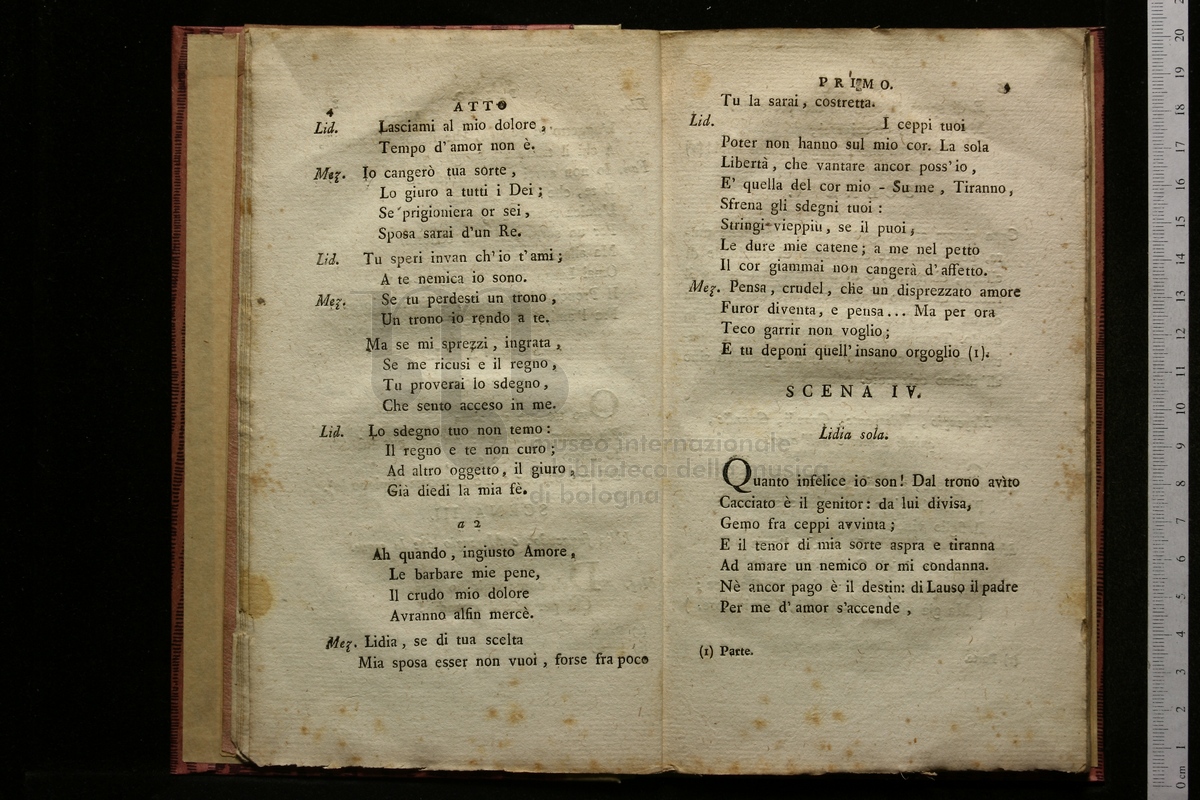 4
ATTO
Lid. Lasciami al mio dolore,
Tempo d'amor non è.
Mez. Io cangerò tua sorte,
Lo giuro a tutti i Dei;
Se prigioniera or sei,
Sposa sarai d'un Re.
Lid. Tu speri invan ch'io t'ami;
A te nemica io sono.
Mez. Se tu perdesti un trono,
Un trono io rendo a te.
Ma se mi sprezzi, ingrata,
Se me ricusi e il regno,
Tu proverai lo sdegno,
Che sento acceso in me.
Lid. Lo sdegno tuo non temo:
Il regno e te non curo;
Ad altro oggetto, il giuro,
Già diedi la mia fè.
a 2
Ah quando, ingiusto Amore,
Le barbare mie pene,
Il crudo mio dolore
Avranno alfin mercè.
Mez. Lidia, se di tua scelta
Mia sposa esser non vuoi, forse fra poco
PRIMO.
Tu la sarai, costretta.
Lid. I ceppi tuoi
Poter non hanno sul mio cor. La sola
Libertà, che vantare ancor poss'io,
E' quella del cor mio - Su me, Tiranno,
Sfrena gli sdegni tuoi:
Stringi vieppiù, se il puoi,
Le dure mie catene; a me nel petto
Il cor giammai non cangerà d'affetto.
Mez. Pensa, crudel, che un disprezzato amore
Furor diventa, e pensa... Ma per ora
Teco garrir non voglio;
E tu deponi quell'insano orgoglio (1).
SCENA IV.
Lidia sola.
Quanto infelice io son! Dal trono avìto
Cacciato è il genitor: da lui divisa,
Gemo fra ceppi avvinta;
E il tenor di mia sorte aspra e tiranna
Ad amare un nemico or mi condanna.
Nè ancor pago è il destin: di Lauso il padre
Per me d'amor s'accende,
(1) Parte.
museo internazionale
biblioteca della musica
di bologna